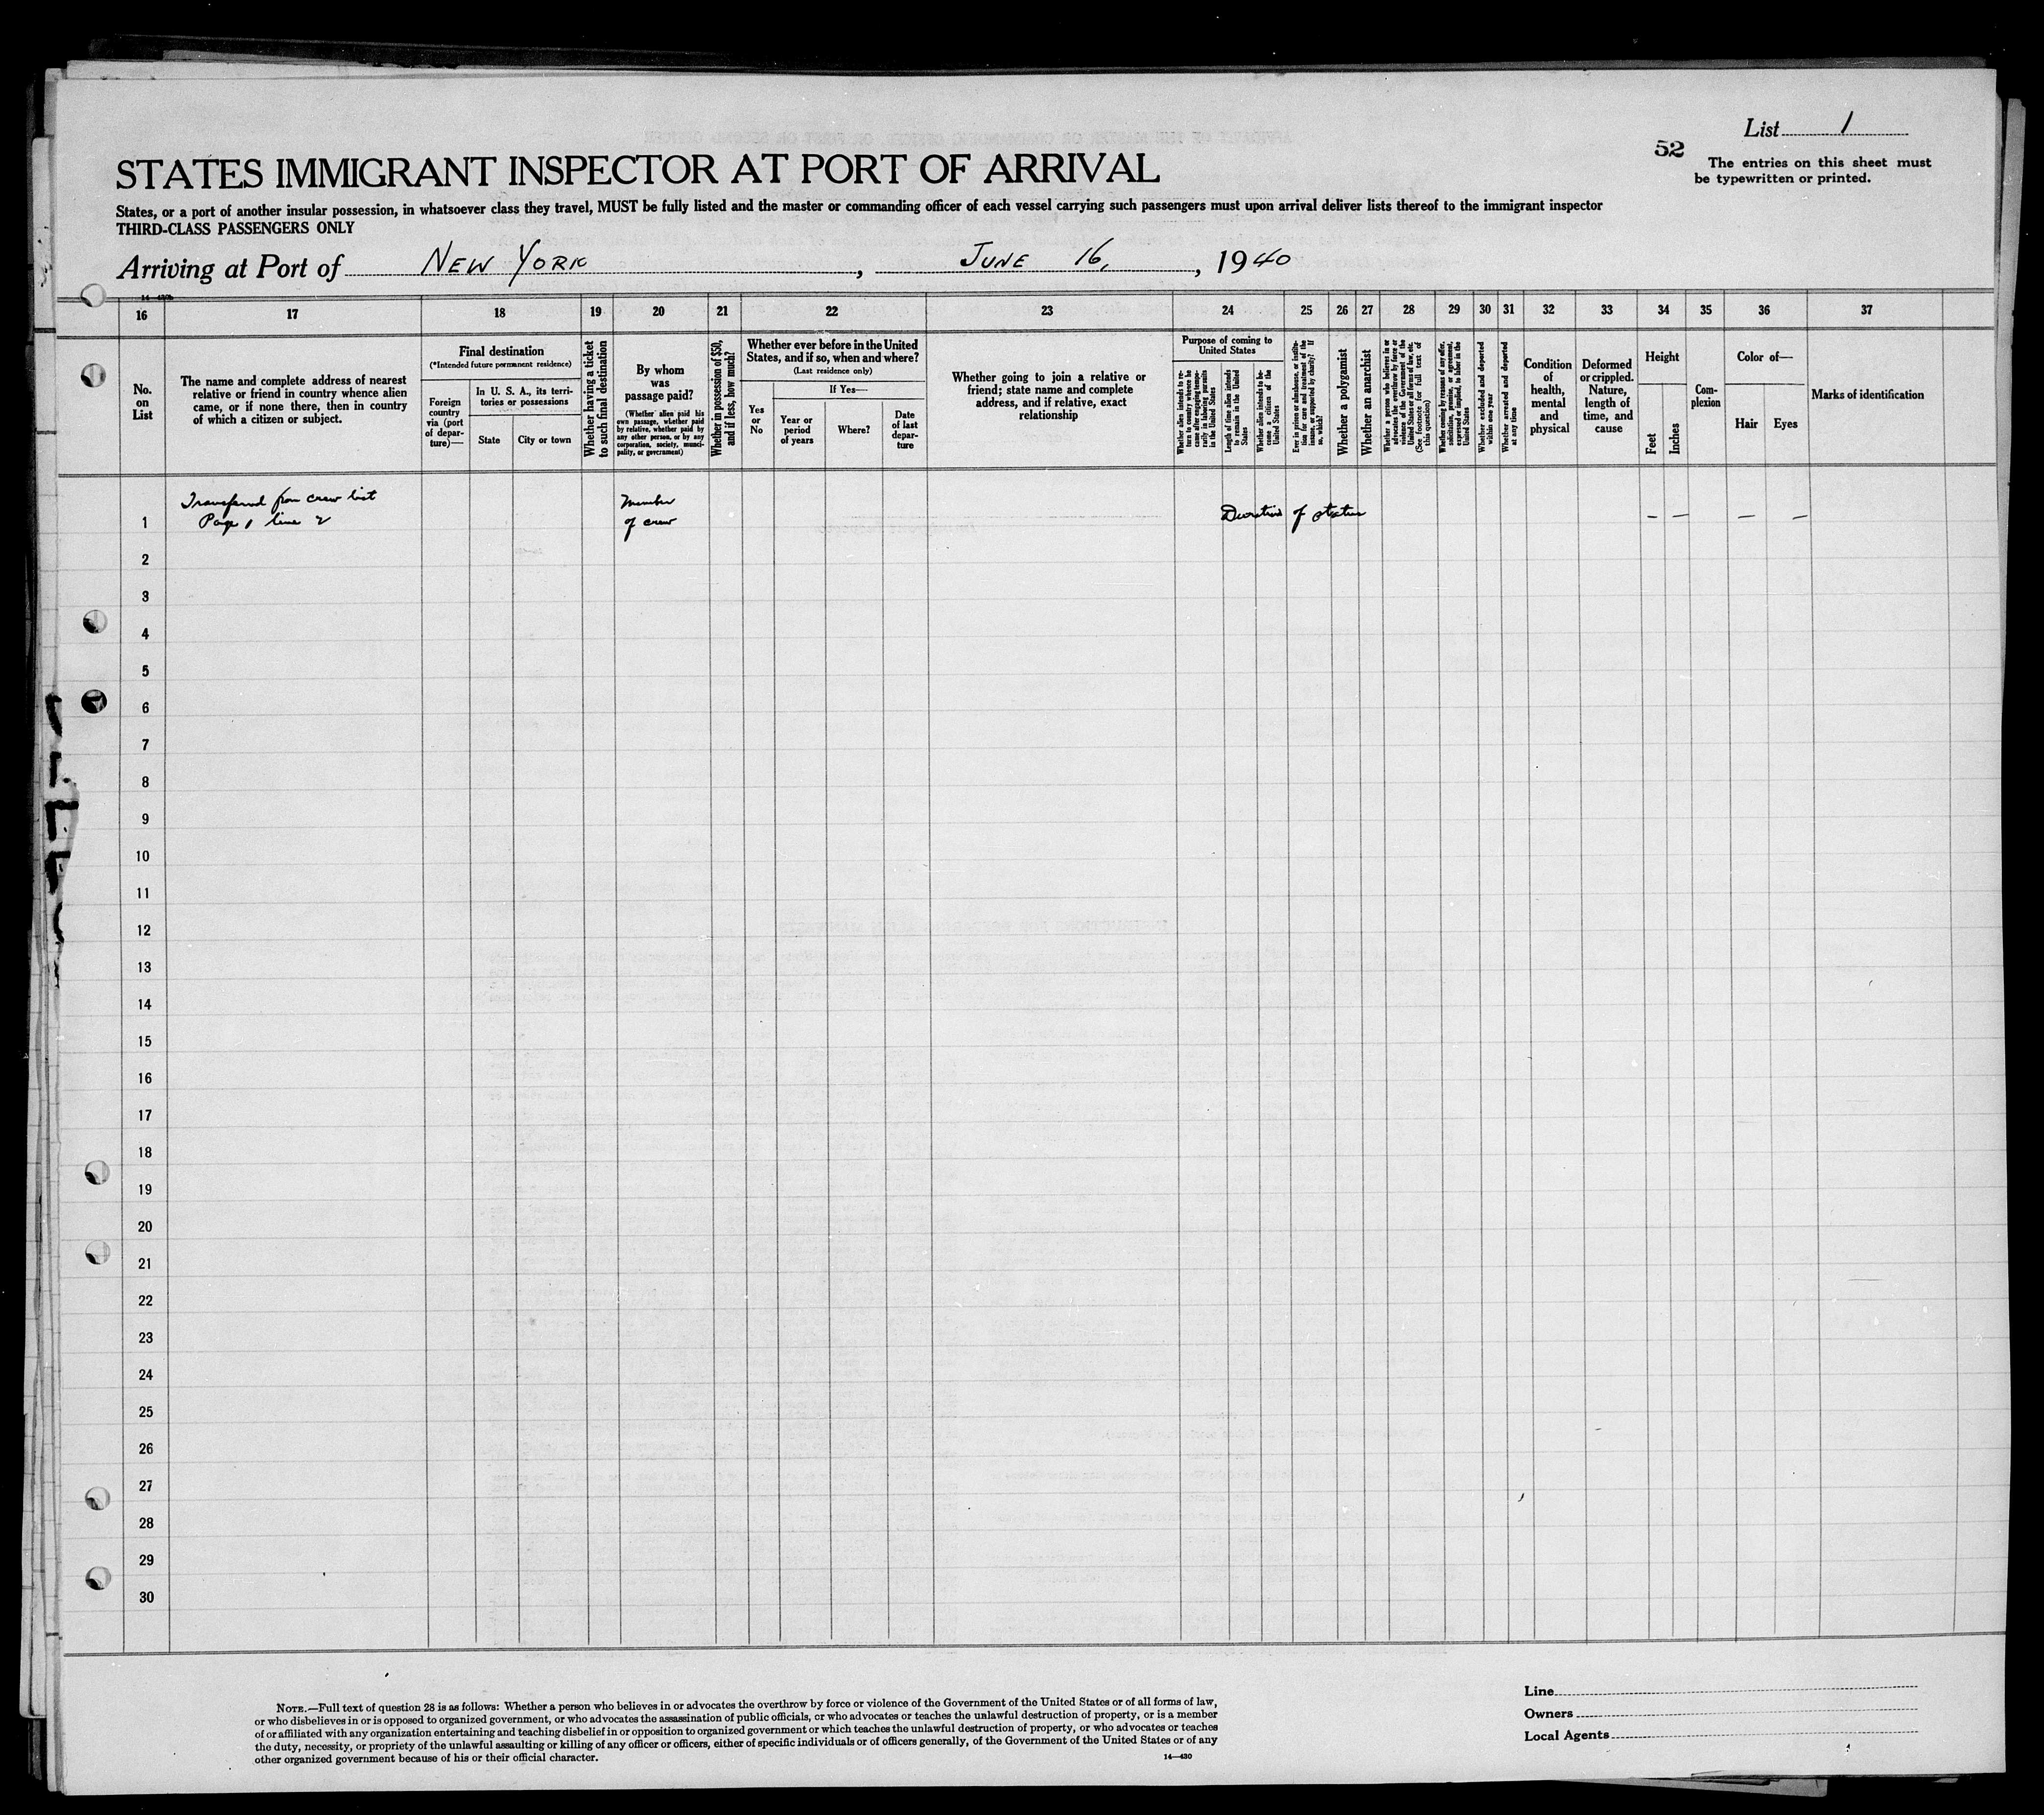 List 1
52
The entries on this sheet must
be typewritten or printed.
STATES IMMIGRANT INSPECTOR AT PORT OF ARRIVAL
States, or a port of another insular possession, in whatsoever class they travel, MUST be fully listed and the master or commanding officer of each vessel carrying such passengers must upon arrival deliver lists thereof to the immigrant inspector
THIRD-CLASS PASSENGERS ONLY
Arriving at Port of NEW YORK, JUNE 16, 1940
16 17 18 19 20 21 22 23 24 25 26 27 28 29 30 31 32 33 34 35 36 37
No.
on
List
The name and complete address of nearest
relative or friend in country whence alien
came, or if none there, then in country
of which a citizen or subject.
Final destination
(*Intended future permanent residence)
Foreign
country
via (port
of depar-
ture)—
In U. S. A., its terri-
tories or possessions
State
City or town
Whether having a ticket
to such final destination
By whom
was
passage paid?
(Whether alien paid his
own passage, whether paid
by relative, whether paid by
any other person, or by any
corporation, society, munici-
pality, or government)
Whether in possession of $50,
and if less, how much?
Whether ever before in the United
States, and if so, when and where?
(Last residence only)
Yes
or
No
If Yes—
Year or
period
of years
Where?
Date
of last
depar-
ture
Whether going to join a relative or
friend; state name and complete
address, and if relative, exact
relationship
Purpose of coming to
United States
Whether alien intends to re-
turn to country whence he
came after engaging tempo-
rarily in laboring pursuits
in the United States
Length of time alien intends
to remain in the United
States
Whether alien intends to be-
come a citizen of the
United States
Ever in prison or almshouse, or institu-
tion for care and treatment of the
insane, or supported by charity? If
so, which?
Whether a polygamist
Whether an anarchist
Whether a person who believes in or
advocates the overthrow by force or
violence of the Government of the
United States or all forms of law, etc.
(See footnote for full text of
this question)
Whether coming by reasons of any offer,
solicitation, promise, or agreement,
expressed or implied, to labor in the
United States
Whether excluded and deported
within one year
Whether arrested and deported
at any time
Condition
of
health,
mental
and
physical
Deformed
or crippled.
Nature,
length of
time, and
cause
Height
Feet
Inches
Com-
plexion
Color of—
Hair
Eyes
Marks of identification
Transferred from crew list
Page 1 line 2
Member
of crew
Duration of status
— — — —
1
2
3
4
5
6
7
8
9
10
11
12
13
14
15
16
17
18
19
20
21
22
23
24
25
26
27
28
29
30
NOTE.—Full text of question 28 is as follows: Whether a person who believes in or advocates the overthrow by force or violence of the Government of the United States or of all forms of law,
or who disbelieves in or is opposed to organized government, or who advocates the assassination of public officials, or who advocates or teaches the unlawful destruction of property, or is a member
of or affiliated with any organization entertaining and teaching disbelief in or opposition to organized government or which teaches the unlawful destruction of property, or who advocates or teaches
the duty, necessity, or propriety of the unlawful assaulting or killing of any officer or officers, either of specific individuals or of officers generally, of the Government of the United States or of any
other organized government because of his or their official character.
14—430
Line
Owners
Local Agents